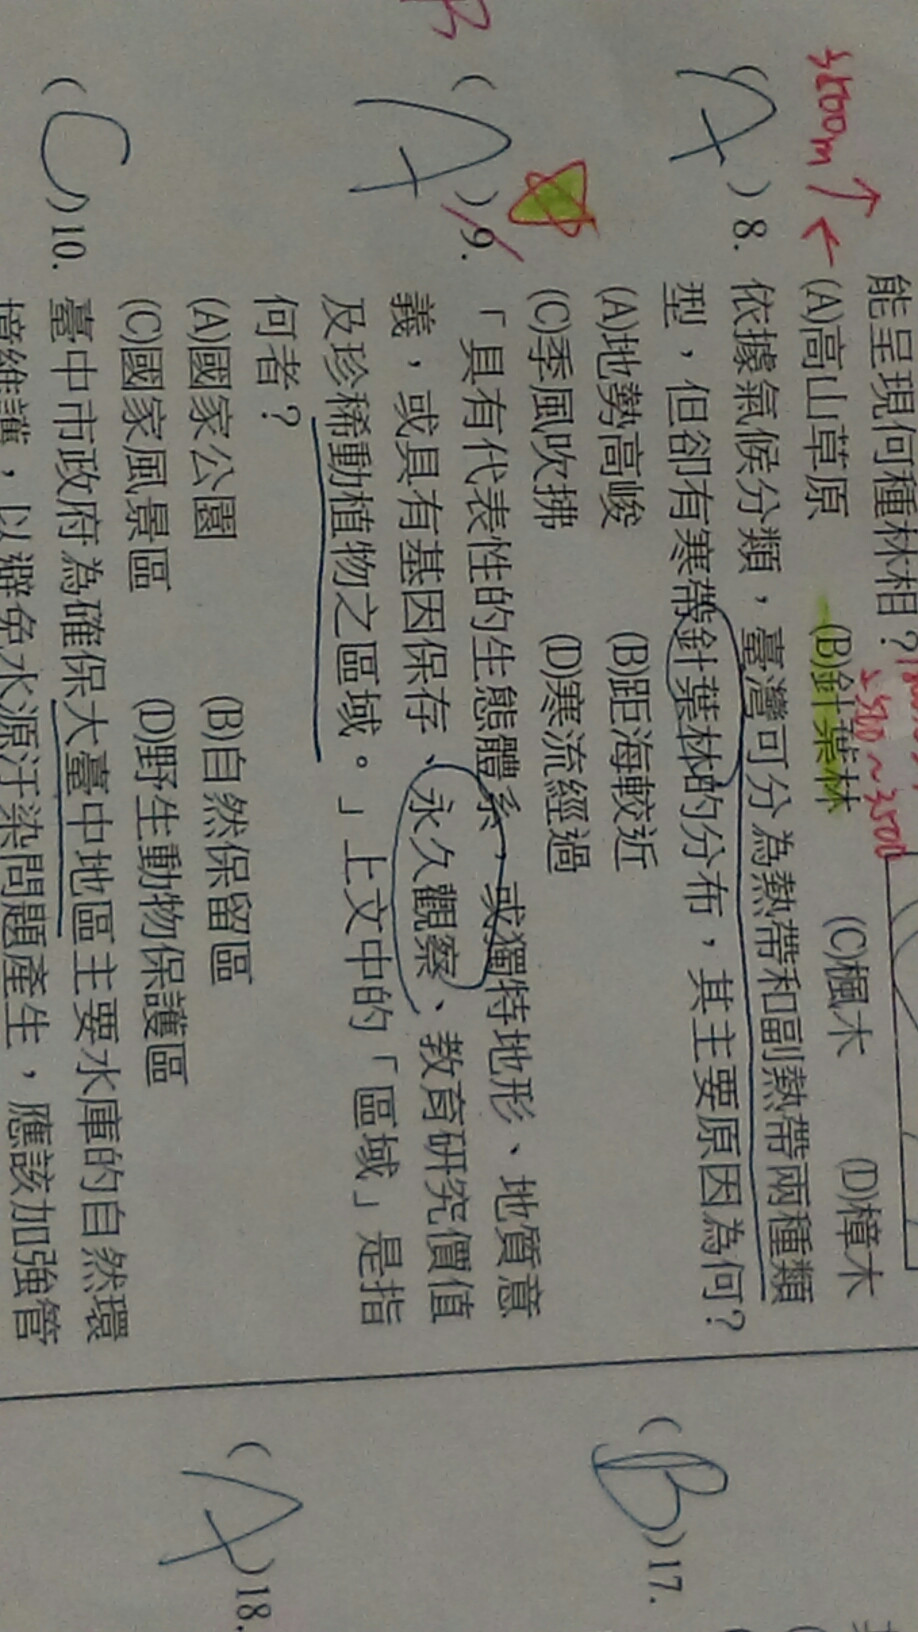 能呈現何種林相？
3500m ↑ ←(A)高山草原 (B)針葉林 (C)楓木 (D)樟木
(A)8. 依據氣候分類，臺灣可分為熱帶和副熱帶兩種類
型，但卻有寒帶針葉林的分布，其主要原因為何？
(A)地勢高峻 (B)距海較近
(C)季風吹拂 (D)寒流經過
B
(A)9. 「具有代表性的生態體系，或獨特地形、地質意
義，或具有基因保存、永久觀察、教育研究價值
及珍稀動植物之區域。」上文中的「區域」是指
何者？
(A)國家公園 (B)自然保留區
(C)國家風景區 (D)野生動物保護區
(C)10. 臺中市政府為確保大臺中地區主要水庫的自然環
境維護，以避免水源汙染問題產生，應該加強管
(B)17.
(A)18.